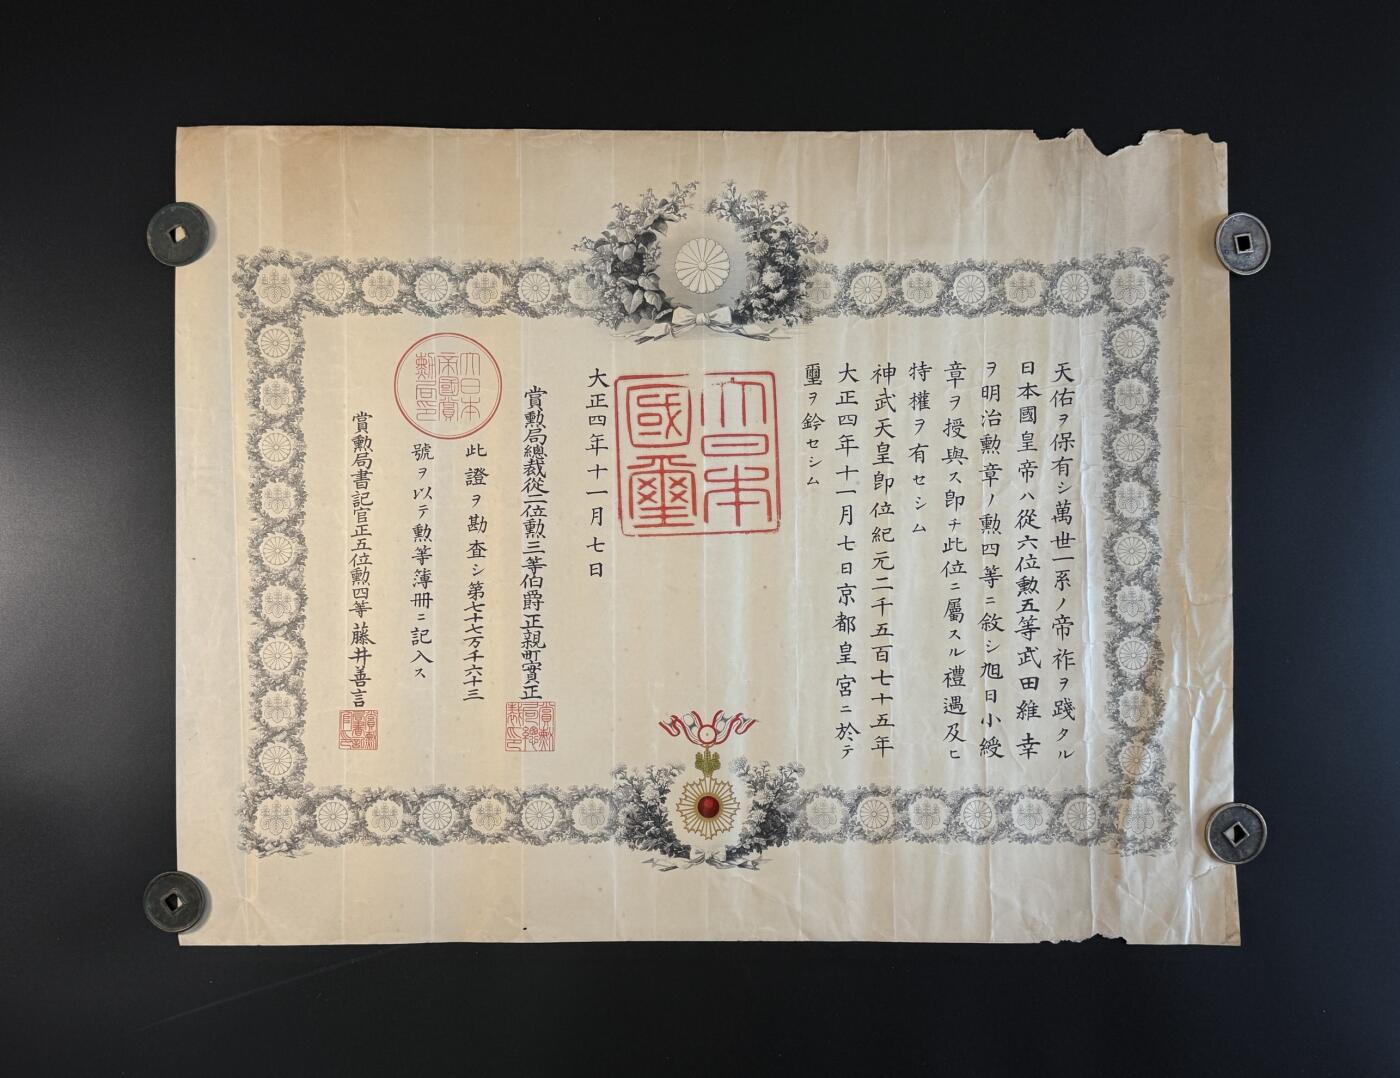 天佑ヲ保有シ萬世一系ノ帝祚ヲ踐タル
日本國皇帝ハ從六位勲五等武田維幸
ヲ明治勲章ノ勲四等ニ敘シ旭日小綬
章ヲ授與ス即チ此位ニ屬スル禮遇及ヒ
特權ヲ有セシム
神武天皇即位紀元二千五百七十五年
大正四年十一月七日京都皇宮ニ於テ
璽ヲ鈐セシム
大日本
國璽
大正四年十一月七日
賞勲局總裁從二位勲三等伯爵正親町實正
賞勲局總裁印
此證ヲ勘査シ第七十七万千六十三
號ヲ以テ勲等簿冊ニ記入ス
大日本
帝國賞
勲局印
賞勲局書記官正五位勲四等藤井善言